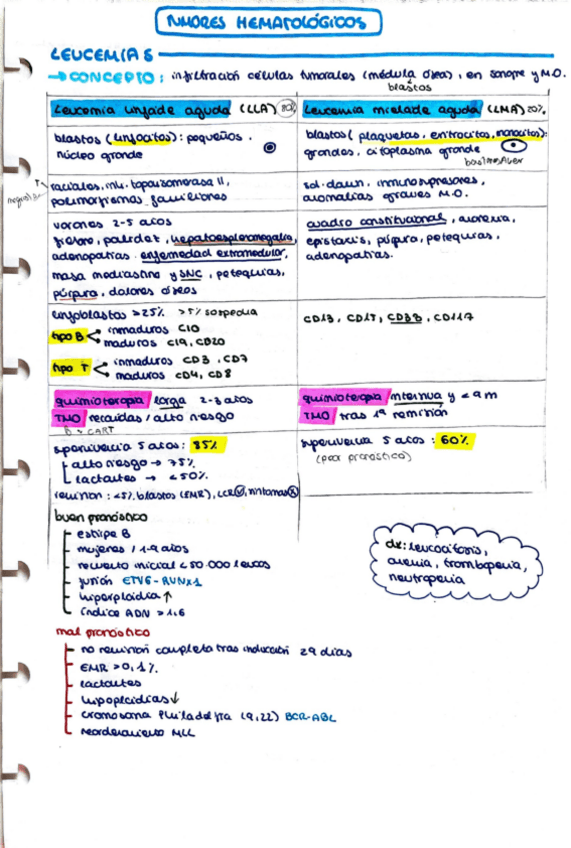 TUMORES HEMATOLÓGICOS
LEUCEMIAS
→ CONCEPTO: infiltración células tumorales (médula ósea), en sangre y M.O.
blastos
Leucemia linfoide aguda (LLA) 80%
blastos (linfocitos): pequeños.
núcleo grande
raciales, inh. topoisomerasa II,
polimorfismos familiares
varones 2-5 años
fiebre, palidez, hepatoesplenomegalia,
adenopatías. enfermedad extramedular,
masa mediastino y SNC, petequias,
púrpura, dolores óseos
linfoblastos >25% >5% sospecha
tipo B
inmaduros C10
maduros C19, CD20
tipo T
inmaduros CD3, CD7
maduros CD4, CD8
quimioterapia larga 2-3 años
TMO recaídas / alto riesgo
CART
supervivencia 5 años: 85%
alto riesgo → 75%
lactantes → <50%
remisión: <5% blastos (EMR), LCR, síntomas
Leucemia mieloide aguda (LMA) 20%
blastos (plaquetas, eritrocitos, monocitos):
grandes, citoplasma grande
bastones Auer
sd. down, inmunosupresores,
anomalías graves M.O.
cuadro constitucional, anorexia,
epistaxis, púrpura, petequias,
adenopatías.
CD13, CD15, CD33, CD117
quimioterapia intensiva y <a m
TMO tras 1ª remisión
supervivencia 5 años: 60%
(peor pronóstico)
buen pronóstico
estirpe B
mujeres / 1-9 años
recuento inicial <50.000 leucos
fusión ETV6-RUNX1
hiperploidia ↑
índice ADN >1.6
mal pronóstico
no remisión completa tras inducción 29 días
EMR >0,1%
lactantes
hipoploidías ↓
cromosoma Philadelfia (9,22) BCR-ABL
reordenamiento MLL
dx: leucocitosis,
anemia, trombopenia,
neutropenia